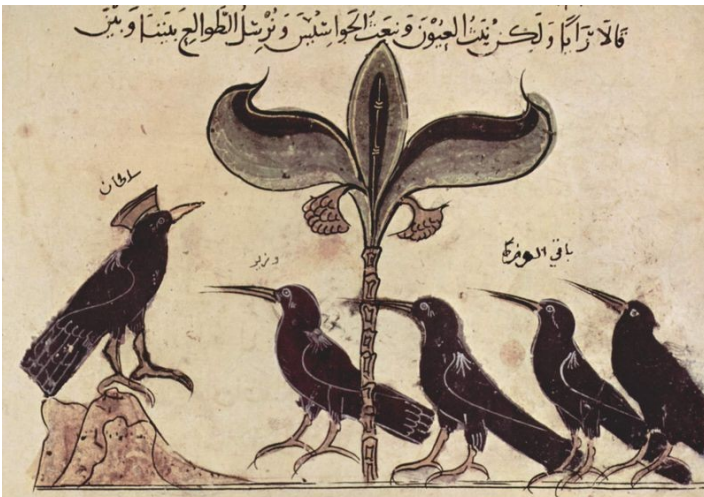 قالا رَايًا وَلكن نبُثّ العُيُونَ وَنبعَثُ الجَواسِيْسَ وَنُرْسِلُ الطَّوالِعَ بيننا وبَين
سلطان
وزير
باقي الوزرا